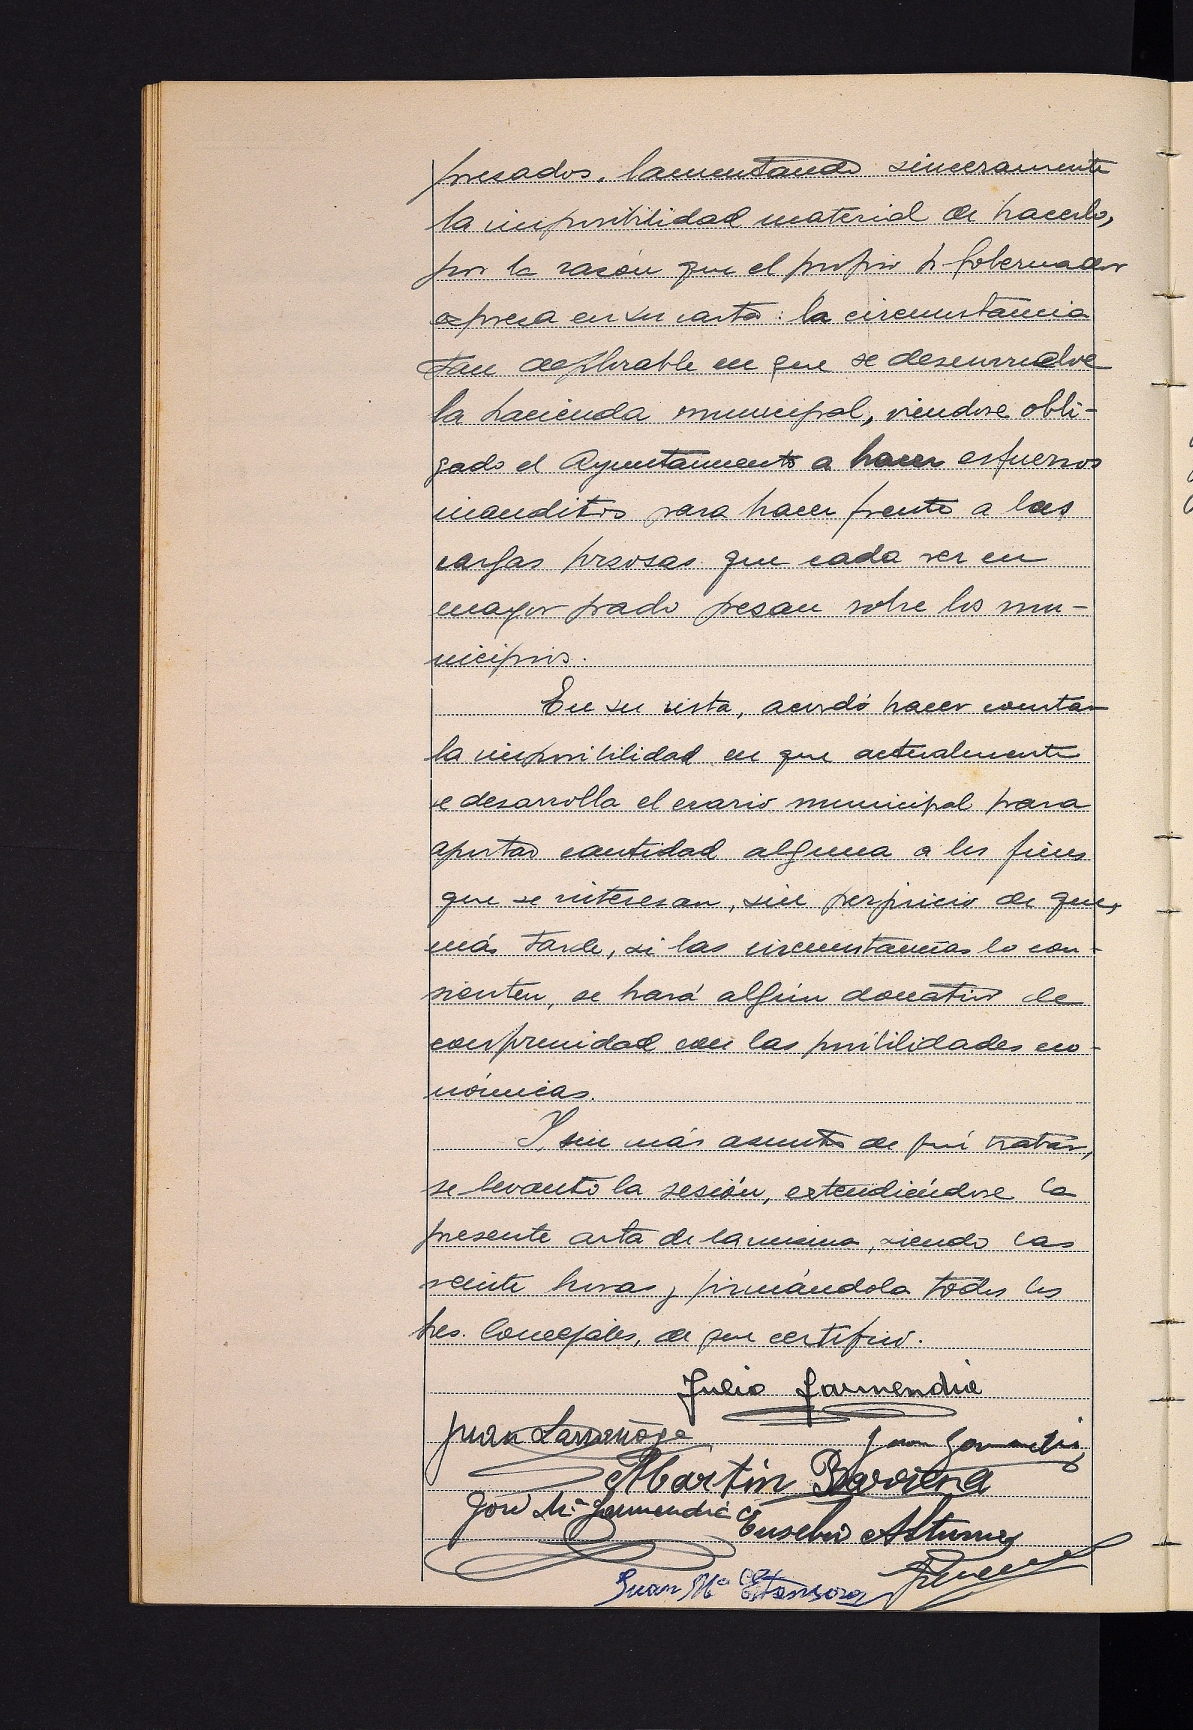 presados, lamentando sinceramente
la imposibilidad material de hacerlo,
por la razón que el propio Sr Gobernador
expresa en su carta: la circunstancia
tan deplorable en que se desenvuelve
la hacienda municipal, viendose obli-
gado el Ayuntamiento a hacer esfuerzos
inauditos para hacer frente a las
cargas que cada vez en
mayor grado pesan sobre los mu-
nicipios.
En su vista, acordó hacer constar
la imposibilidad en que actualmente
se desarrolla el erario municipal para
aportar cantidad alguna a los fines
que se interesan, sin perjuicio de que,
más tarde, si las circunstancias lo con-
sienten, se hará algún donativo de
conformidad con las posibilidades eco-
nómicas.
Y sin más asuntos de qué tratar,
se levantó la sesión, extendiéndose la
presente acta de la misma, siendo las
veinte horas y firmándola todos los
Sres. Concejales, de que certifico.
Julio Garmendia
Juan Larrañaga
Juan Garmendia
Martín
José Mª Garmendia
Eusebio
Juan Mª